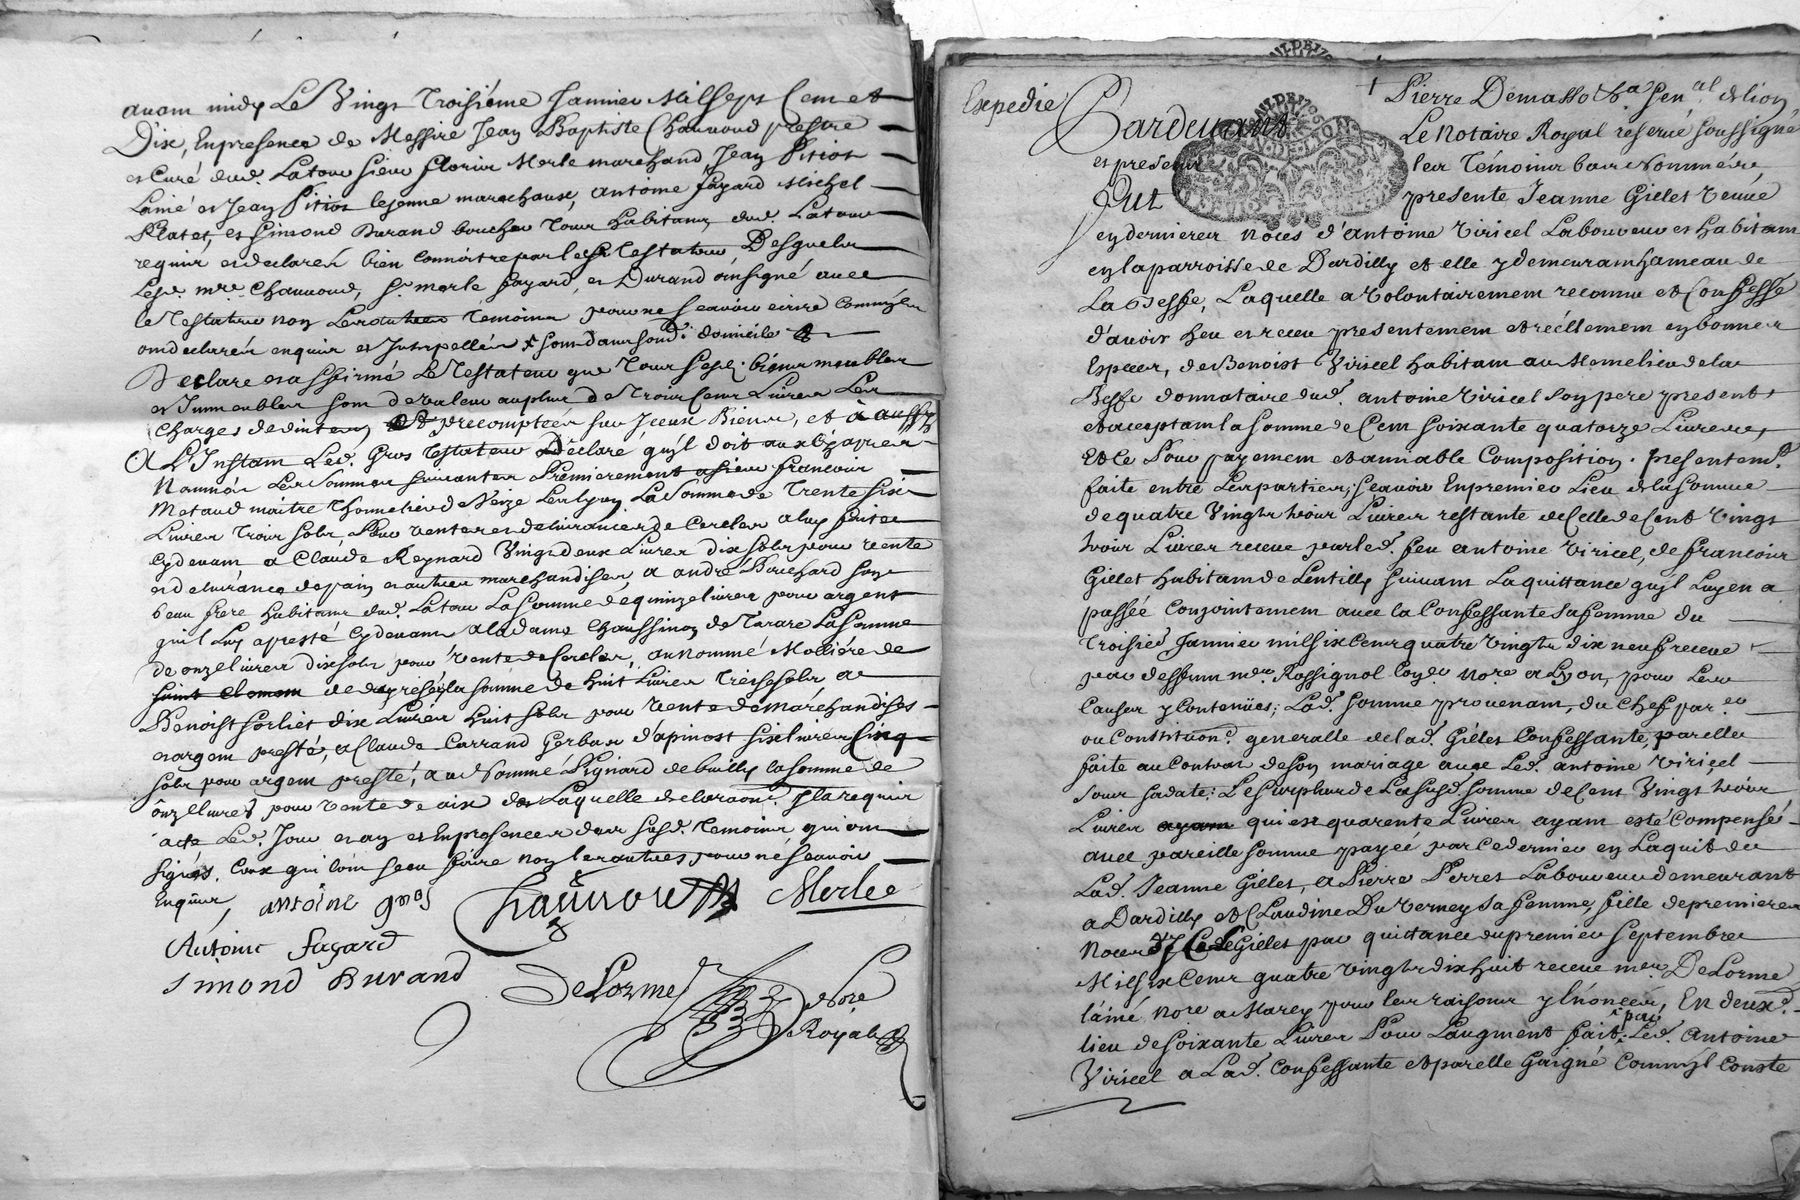 avant midy Le Vingt Troisiéme Janvier Mil Sept Cent et
Dix, En presence de Messire Jean Baptiste Chauvoud prestre
et Curé dud. Latour sieur florin Merle marchand Jean Pition
Lainé et Jean Pition lejeune marechaux, antoine fayard Michel
Platet, et Simond Durand boucher Tour habitans dud. Latour
requis et declarés bien Connoitre par led. Testateur Desquels
Lesd. mre. Chauvoud, Sr. merle fayard, et Durand ont signé avec
le Testateur non Les autres Témoins pour ne scavoir ecrire Comme ils
ont declarés enquis et Interpellés
Declare et a affirmé Le Testateur que Tous sesd. biens meubles
et Immeubles sont de valeur au plus de Trois Cens Livres Les
Charges deduites et precomptées sur Iceux Biens, et
A L'Instant Led. Gros Testateur Déclaré qu'il doit aux
Nommés Les sommes suivantes Premierement a sieur francois
Metaud maitre Thonnelier de Veize Les Lyon La Somme de Trente six
Livres Trois sols, Pour vente et delivrance de Cercles a luy faite
Cy devant a Claude Reynard Vingt deux Livres dix sols pour vente
et delivrance de pain et autres marchandises a andré Bouchard son
beau frere habitant dud. Latour La somme de quinze livres pour argent
qu'il Luy a presté Cy devant a la dame Chaussinon de Tarare La somme
de onze livres dix sols pour vente de Cercles, au nommé Moliére de
la somme de huit Livres Treize sols a
Benoist dix Livres huit sols pour vente de marchandises
et argent presté, a Claude Carrand Gerbax d'apinost six livres Cinq
sols pour argent presté, a un Nommé Pignard de builly la somme de
onze livres pour vente de De Laquelle declaraon. Il a requis
acte Led. Jour et an et En presence des susd. Temoins qui ont
signés Ceux qui l'ont sceu faire non les autres pour ne scavoir
Enquis, antoine gros Chauvoud Merle
Antoine fayard
Simond Durand
DeLorme
Nore
Royal
Expedié
† Pierre Demasso gen.al de lion
Pardevant Le Notaire Royal reservé soussigné
et presens les Témoins bas Nommés,
Fut presente Jeanne Gillet Veuve
en dernieres noces d'antoine Viricel Laboureur et habitant
en la parroisse de Dardilly et elle y demeurant hameau de
La Besse, Laquelle a volontairement reconnu et Confessé
d'avoir heu et receu presentement et réellement en bonnes
Especes, de Benoist Viricel habitant au Meme lieu de la
Besse donnataire dud. antoine Viricel son pere present
et acceptant la somme de Cent soixante quatorze Livres,
Et Ce Pour payement et amiable Composition presentemt.
faite entre Les parties; scavoir En premier Lieu de la somme
de quatre Vingts trois Livres restante de Celle de Cent Vingt
trois Livres receue par led. feu antoine Viricel, de francois
Gillet habitant de Lentilly suivant La quittance qu'il Luy en a
passée Conjointement avec la Confessante sa femme du
Troisie. Janvier mil six Cens quatre Vingts dix neuf receue
par deffunt me. Rossignol Con.er no.re a Lyon, pour Les
Causes y Contenües; Lad. somme provenant, du Chef par.er
ou Constituon. generalle de lad. Gillet Confessante, par elle
faite au Contrat de son mariage avec Led. antoine Viricel
sous sa date; Le surplus de La susd. somme de Cent Vingt trois
Livres qui est quarente Livres ayant esté Compensé
avec pareille somme payée par Ce dernier en L'aquit de
Lad. Jeanne Gillet, a Pierre Perret Laboureur demeurant
a Dardilly et Claudine Du Verney sa femme, fille de premieres
Noces de Lad. Gillet par quittance du premier Septembre
Mil six Cens quatre Vingts dix huit receue me. DeLorme
l'ainé nore. a Marcy pour les raisons y Enoncées, En deux.e
lieu de soixante Livres Pour L'augment fait par Led. Antoine
Viricel a Lad. Confessante et par elle Gaigné Comm'il Conste